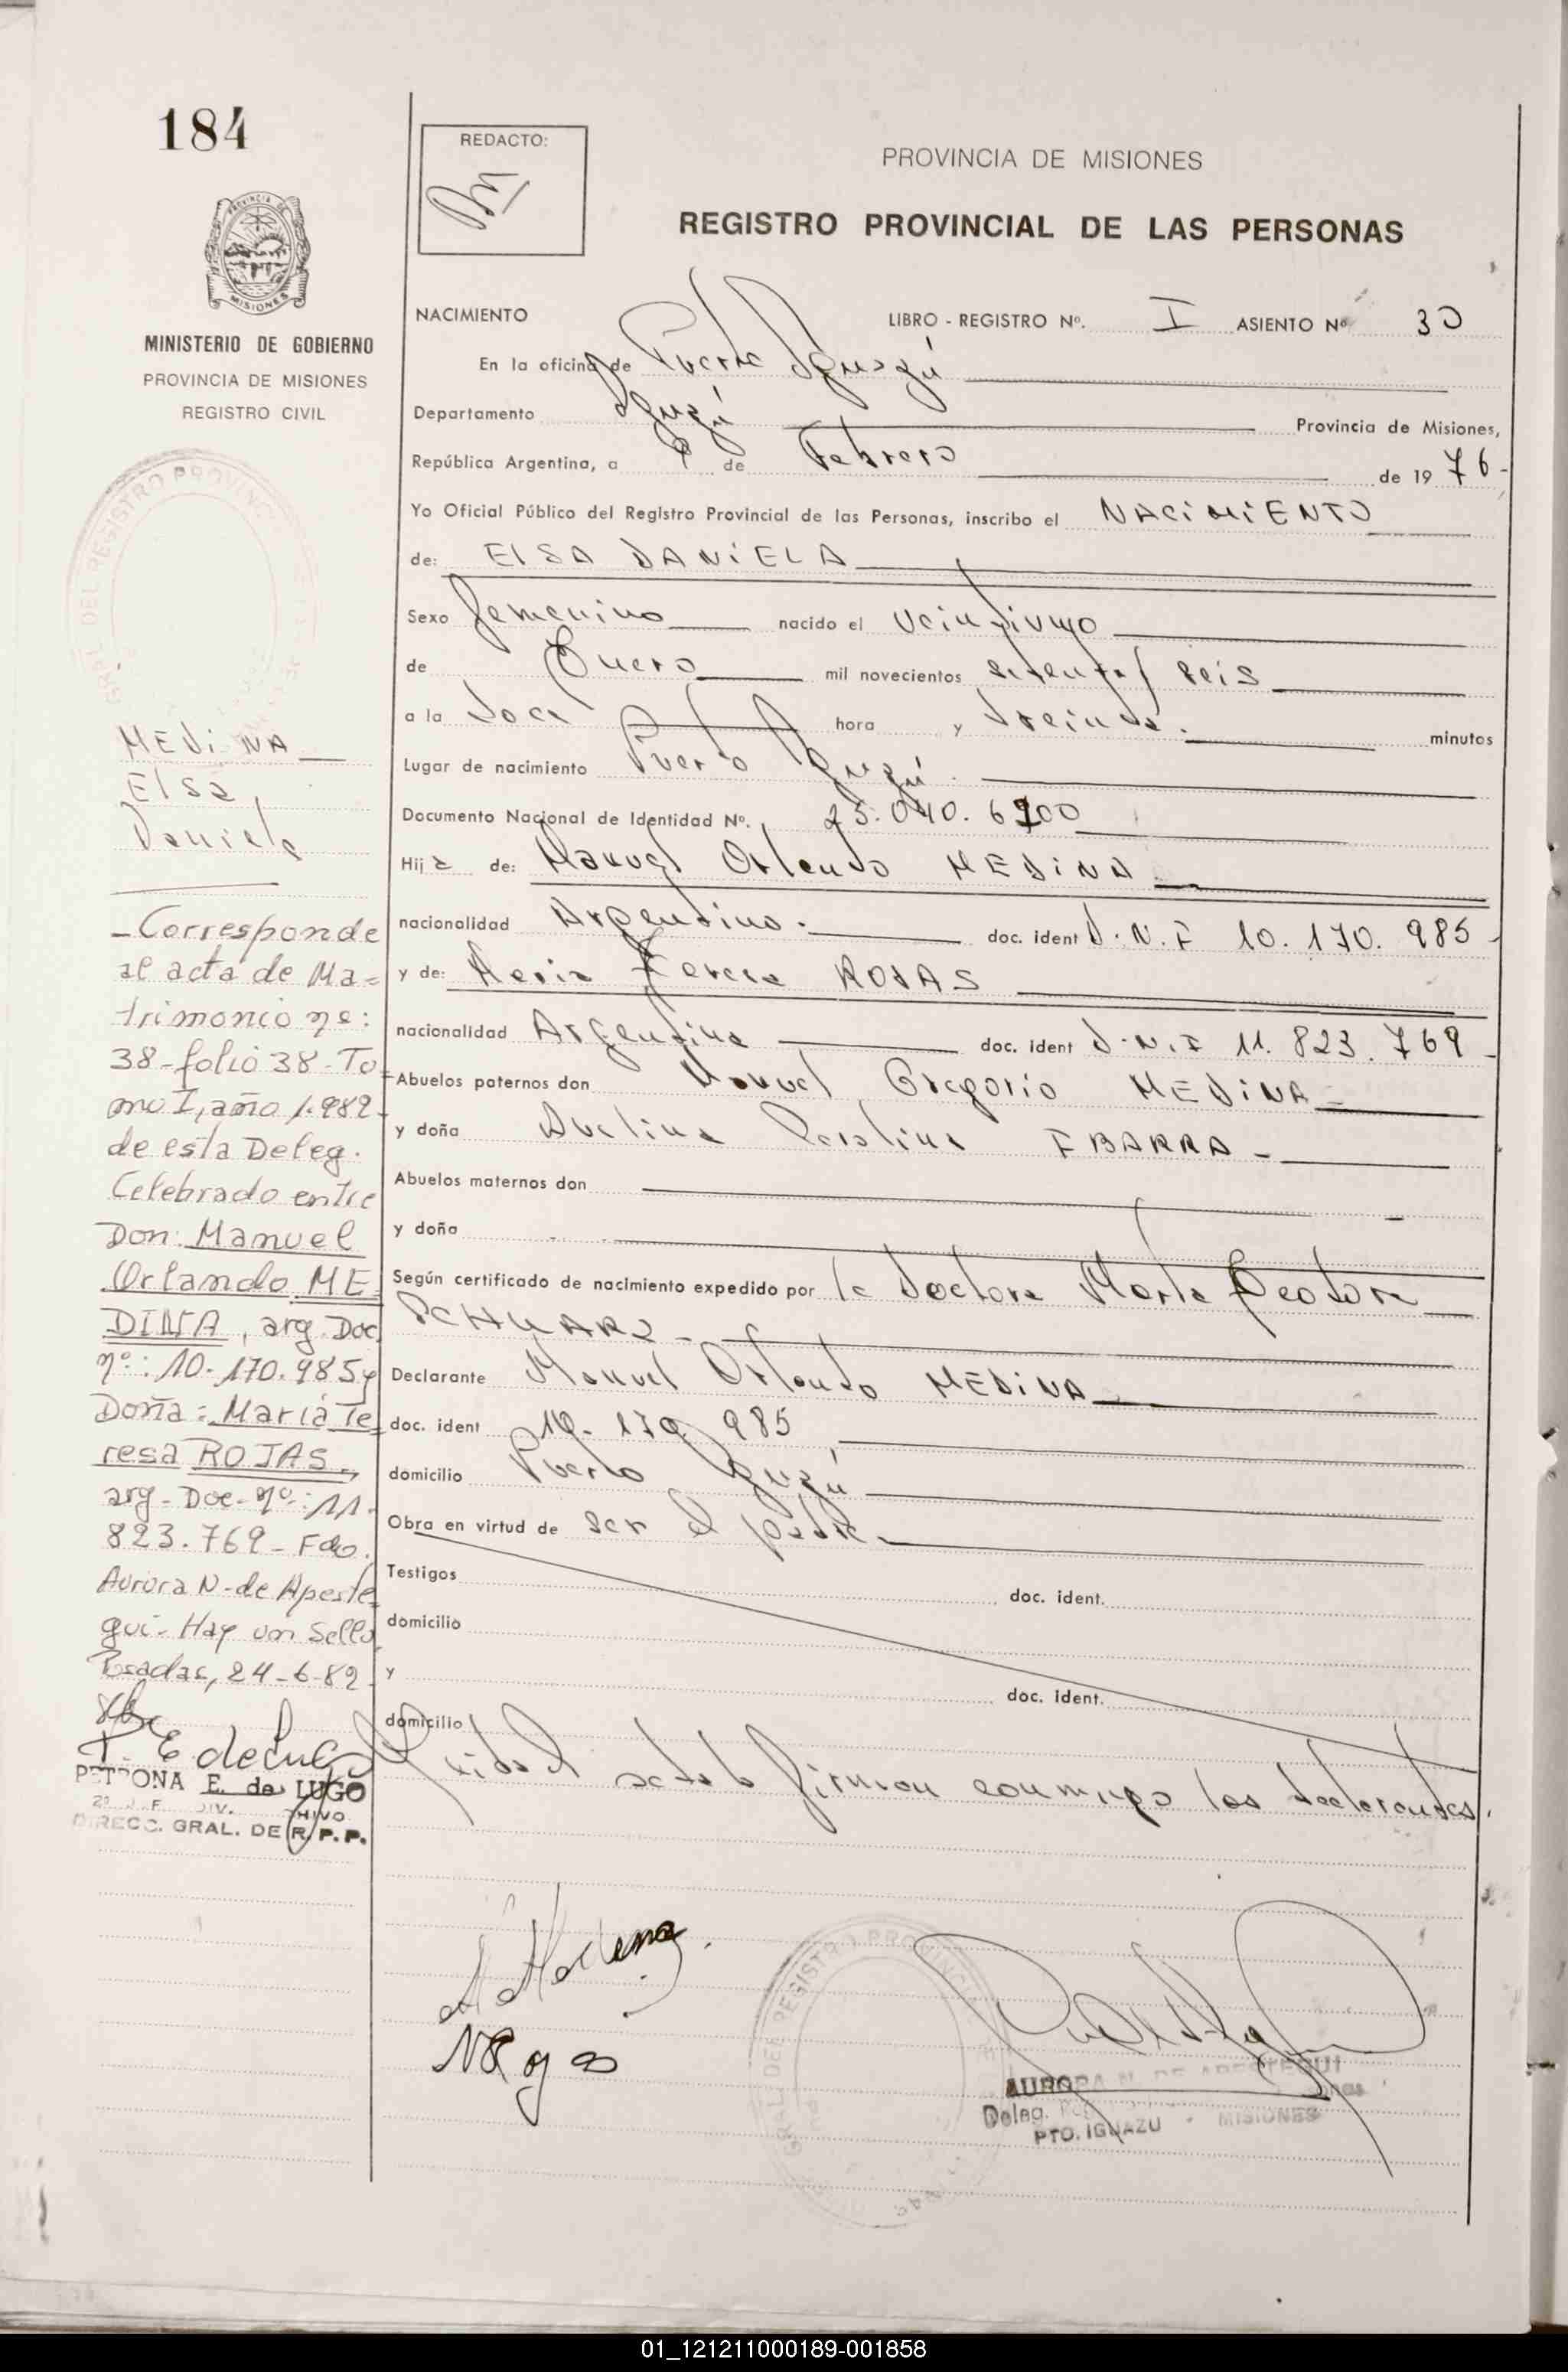 184
MINISTERIO DE GOBIERNO
PROVINCIA DE MISIONES
REGISTRO CIVIL
MEDiNA
Elsa
Daniela
- Corresponde
al acta de Ma=
trimonio nº:
38-folio 38-To=
mo I, año 1.982-
de esta Deleg.
Celebrado entre
Don: Manuel
Orlando ME=
DINA, arg. Doc
nº: 10.170.985 y
Doña: María Te=
resa ROJAS,
arg- Doc- nº: 11.
823.769- Fdo.
Aurora N. de Apeste=
gui- Hay un Sello
Posadas, 24-6-82
P. E de Lugo
PETRONA E. de LUGO
DIRECC. GRAL. DE R. P. P.
REDACTO:
PROVINCIA DE MISIONES
REGISTRO PROVINCIAL DE LAS PERSONAS
NACIMIENTO LIBRO - REGISTRO Nº. I ASIENTO Nº 30
En la oficina de Puerto Iguazú
Departamento Iguazú Provincia de Misiones,
República Argentina, a 9 de Febrero de 19 76-
Yo Oficial Público del Registro Provincial de las Personas, inscribo el NACiMiENTO
de: ElSA DANiELA
Sexo femenino nacido el veintiuno
de Enero mil novecientos setenta y seis
a la doce hora y treinta. minutos
Lugar de nacimiento Puerto Iguazú.
Documento Nacional de Identidad Nº. 25.040.
Hij a de: Manuel Orlando MEDiNA
nacionalidad Argentino. doc. ident D.N.I 10.170.985-
y de: María Teresa ROJAS
nacionalidad Argentina doc. ident D.N.I 11.823.769-
Abuelos paternos don Manuel Gregorio MEDiNA
y doña Avelina IBARRA-
Abuelos maternos don
y doña
Según certificado de nacimiento expedido por la doctora Marta
SCHUARZ-
Declarante Manuel Orlando MEDiNA
doc. ident 10.170.985
domicilio Puerto Iguazú
Obra en virtud de ser el padre
Testigos doc. ident.
domicilio
y doc. ident.
domicilio
Leída el acta la firman conmigo los declarantes.
AURORA N. DE APESTEGUI
Deleg.
PTO. IGUAZU - MISIONES
01_121211000189-001858